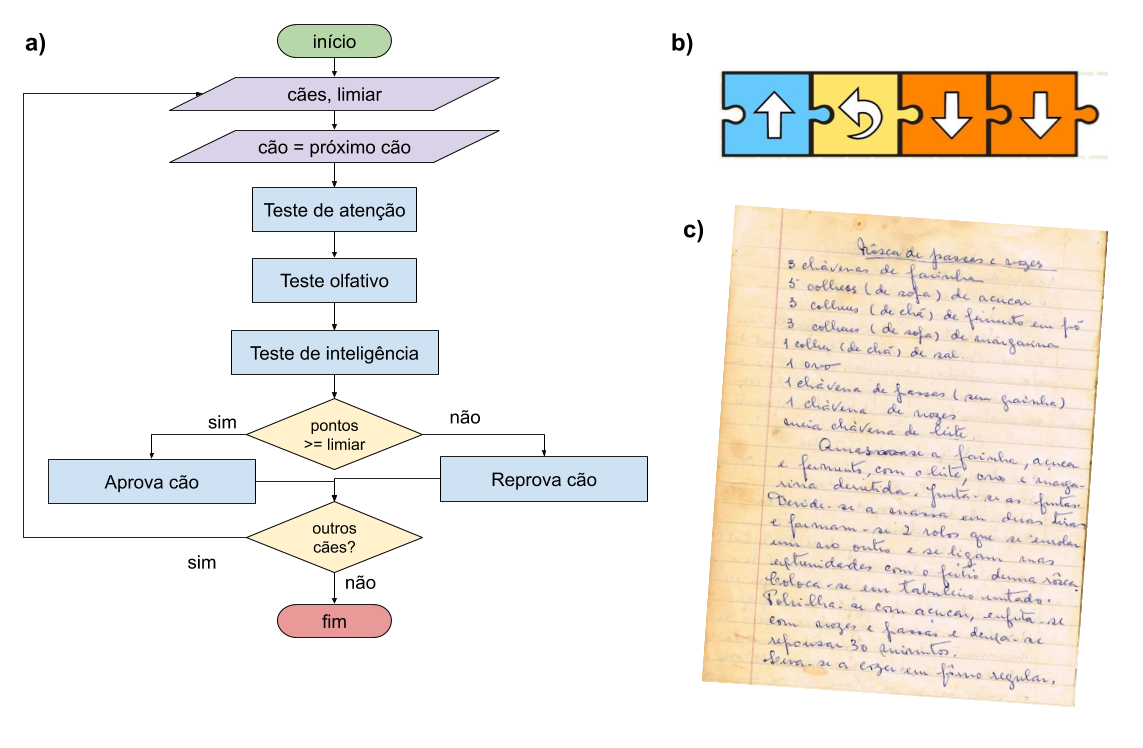 a)
início
cães, limiar
cão = próximo cão
Teste de atenção
Teste olfativo
Teste de inteligência
pontos
>= limiar
sim
não
Aprova cão
Reprova cão
outros
cães?
sim
não
fim
b)
c)
Rôsca de passas e nozes
3 chávenas de farinha
5 colheres (de sopa) de açucar.
3 colheres (de chá) de fermento em pó
3 colheres (de sopa) de margarina
1 colher (de chá) de sal.
1 ovo
1 chávena de passas (sem grainha)
1 chávena de nozes
meia chávena de leite.
a farinha, açucar
e fermento, com o leite, ovo e marga-
rina derretida. Junta-se as frutas.
Devide-se a massa em duas tiras
e formam-se 2 rolos que se enrolam
um no outro e se ligam nas
extremidades com o feitio duma rôsca.
Coloca-se em taboleiro untado.
Polvilha-se com açucar, enfeita-se
com nozes e passas e deixa-se
repousar 30 minutos.
Leva-se a cozer em fôrno regular.